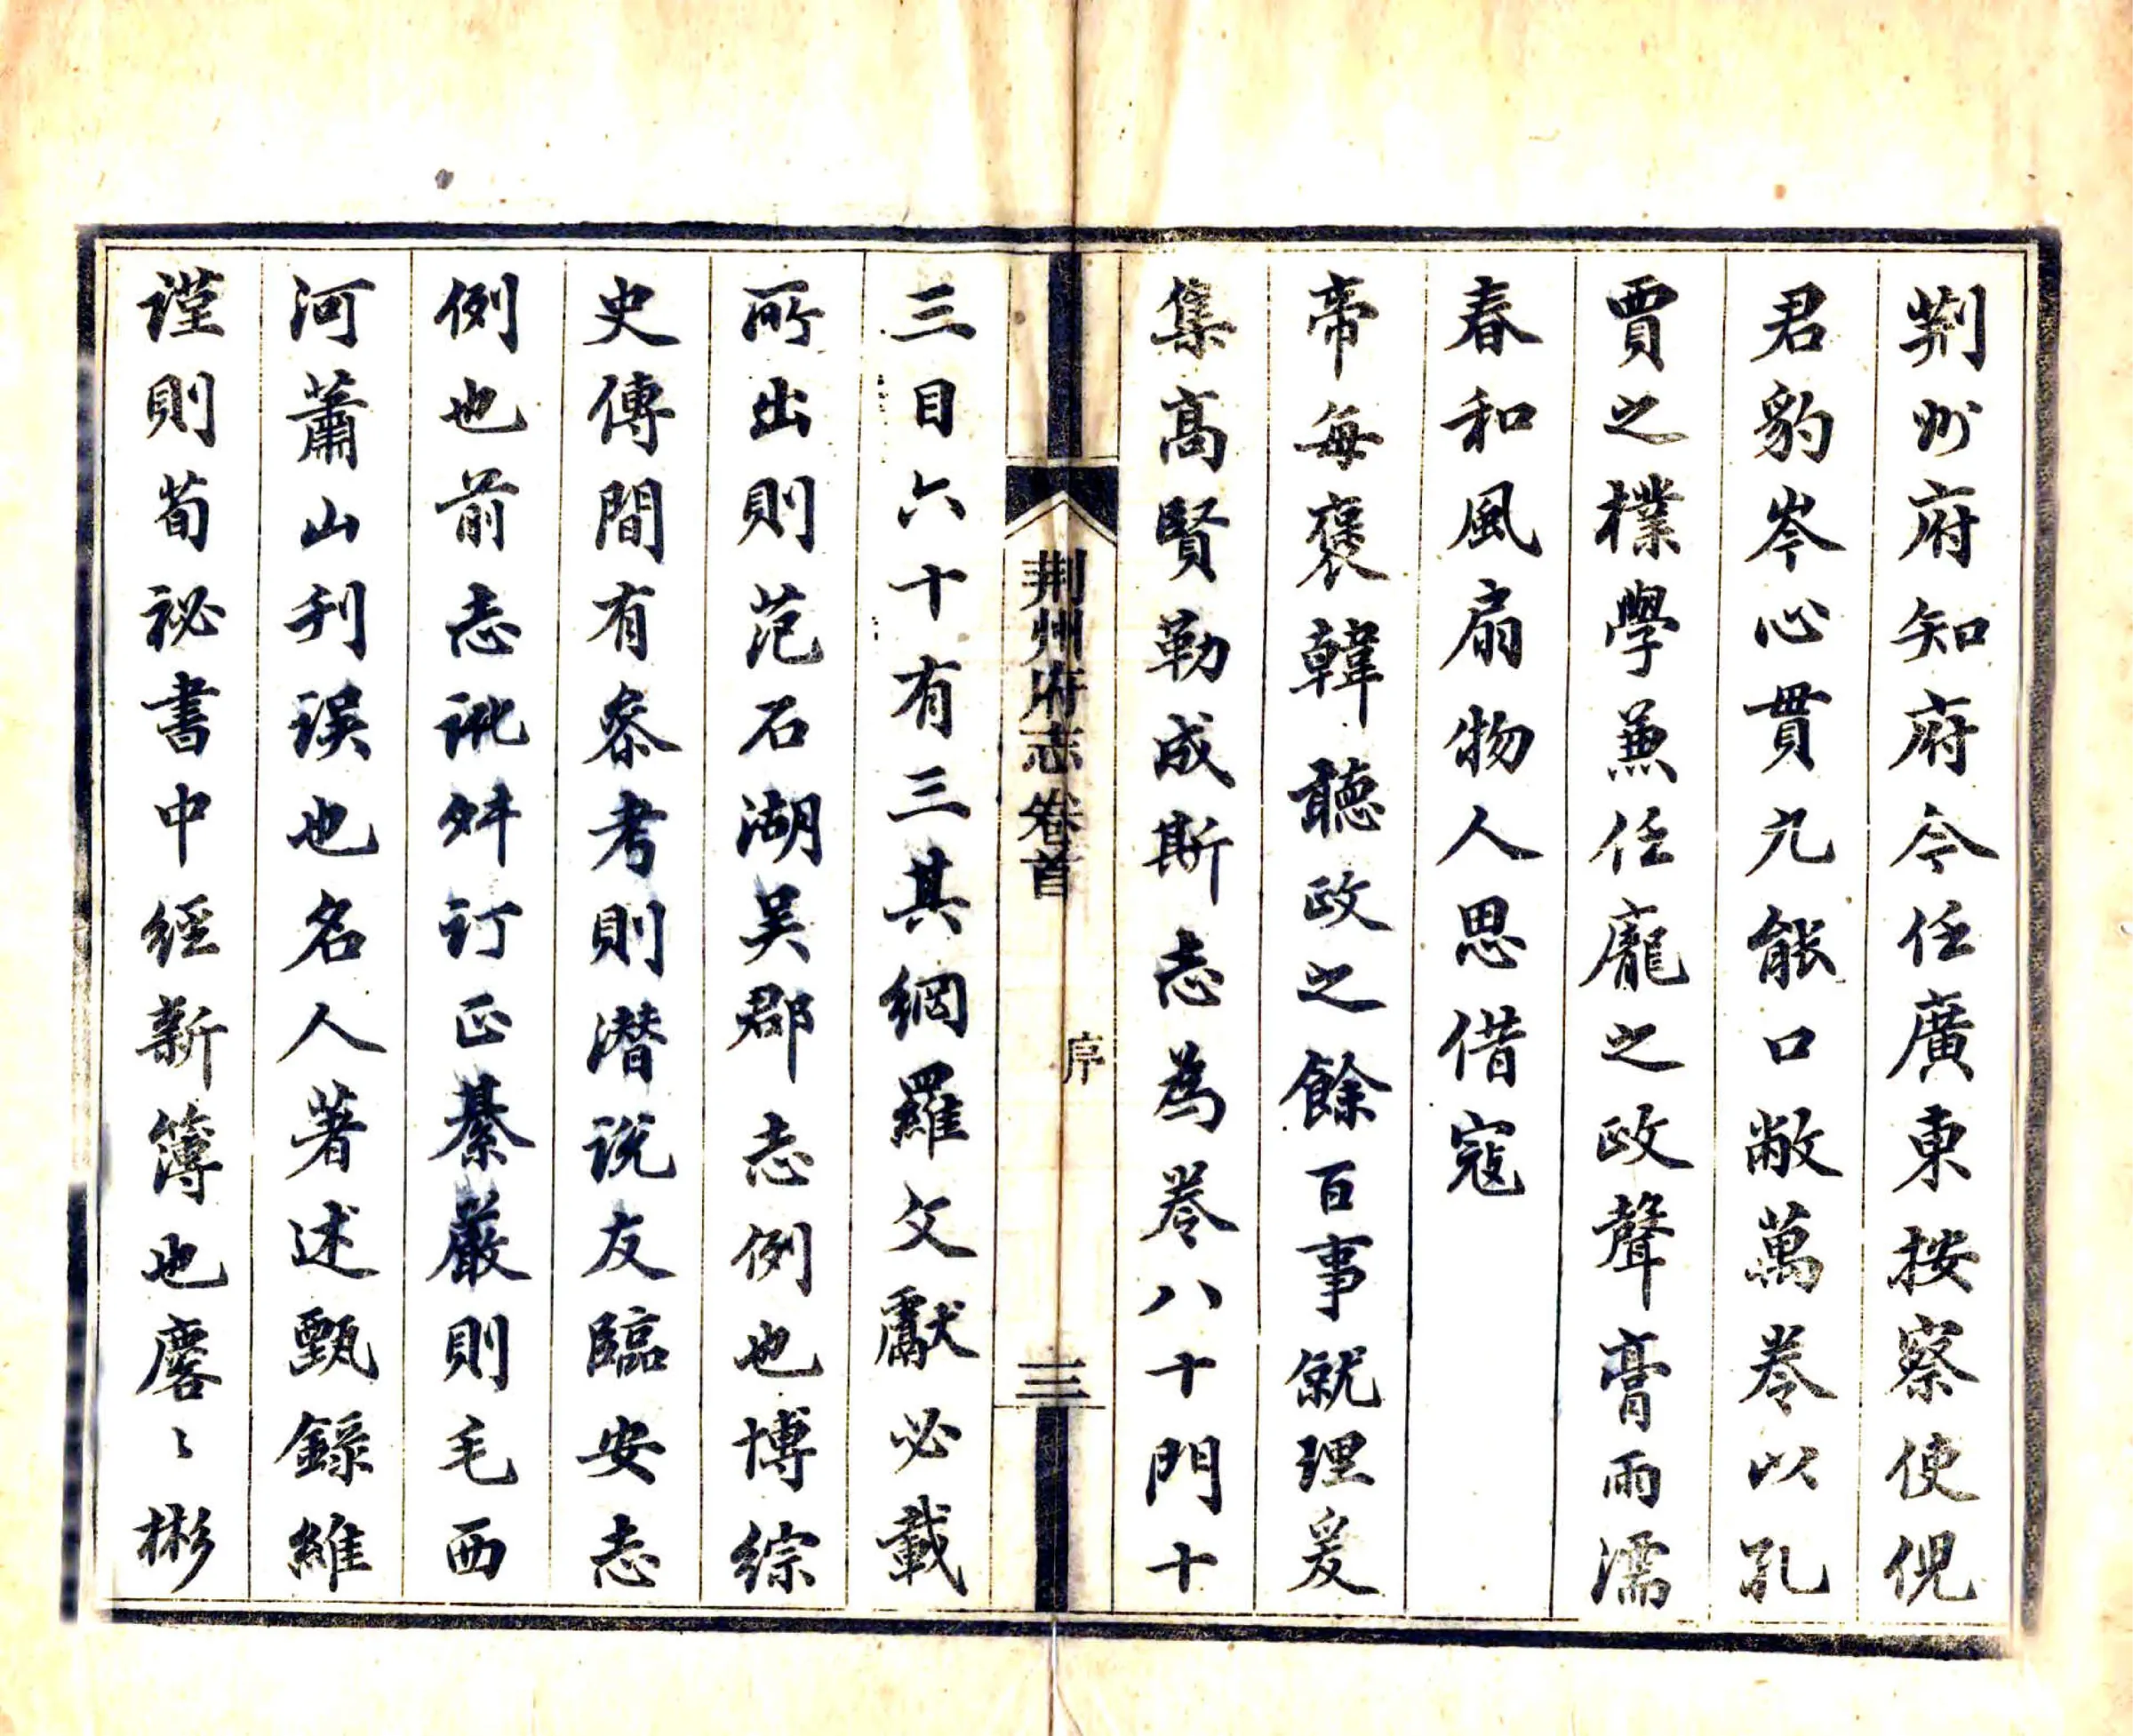 荆州府知府今任廣東按察使倪
君豹岑心貫九能口敝萬卷以孔
賈之樸學兼任龐之政聲膏雨濡
春和風扇物人思借寇
帝每褒韓聽政之餘百事就理爰
集高賢勒成斯志為卷八十門十
荆州府志卷首
序
三
三目六十有三其網羅文獻必載
所出則范石湖吴郡志例也博綜
史傳間有叅考則潛说友臨安志
例也前志訛舛订正綦嚴則毛西
河蕭山刊误也名人著述甄錄維
谨則荀祕書中经新簿也麐〻彬